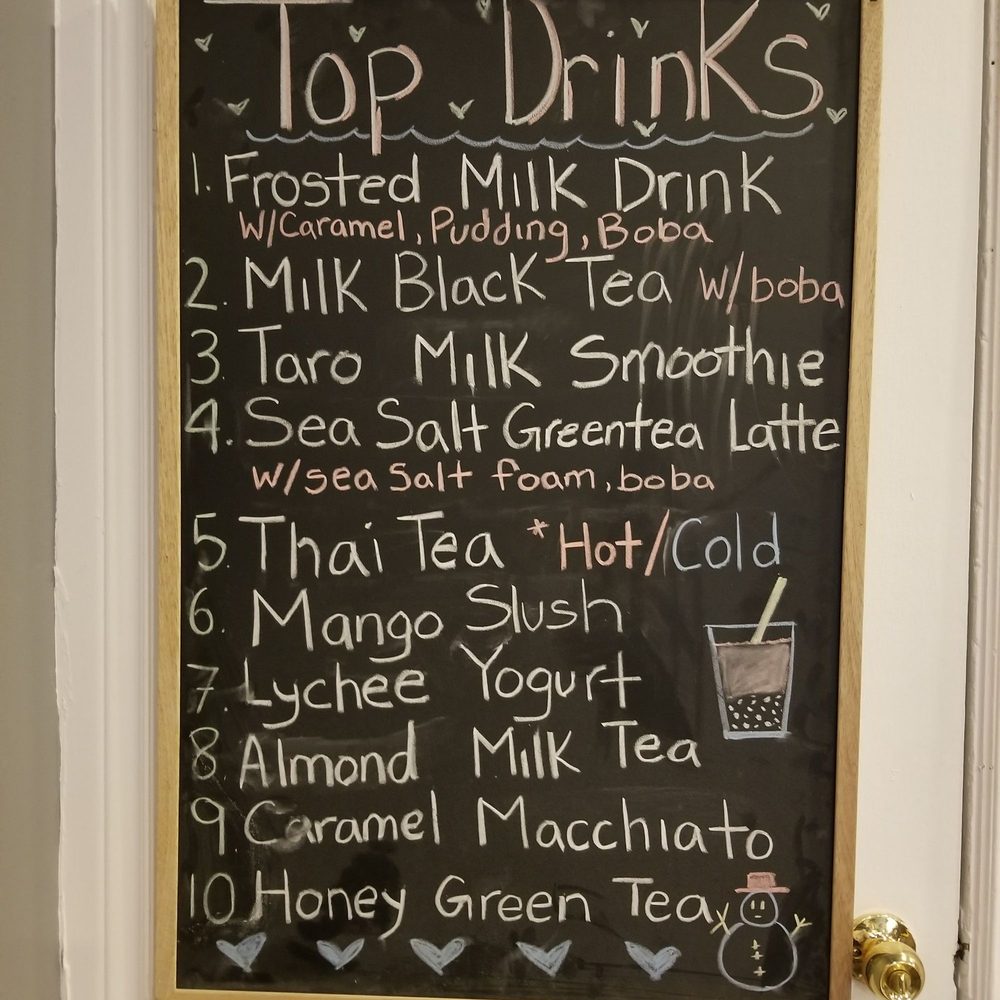 Top Drinks
1. Frosted Milk Drink
W/Caramel, Pudding, Boba
2. Milk Black Tea w/boba
3. Taro Milk Smoothie
4. Sea Salt Greentea Latte
w/sea Salt foam, boba
5. Thai Tea *Hot/Cold
6. Mango Slush
7. Lychee Yogurt
8. Almond Milk Tea
9. Caramel Macchiato
10. Honey Green Tea